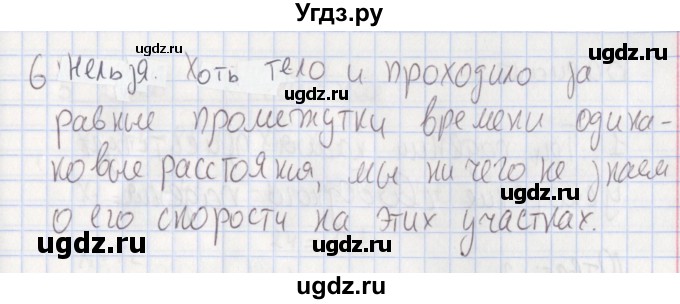 Угдз.ру
ugdz.ru ugdz.ru
6 Нельзя. Хоть тело и проходило за
ugdz.ru
равные промежутки времени одина-
ugdz.ru ugdz.ru
ковые расстояния, мы ничего не знаем
ugdz.ru
о его скорости на этих участках.
ugdz.ru ugdz.ru
ugdz.ru